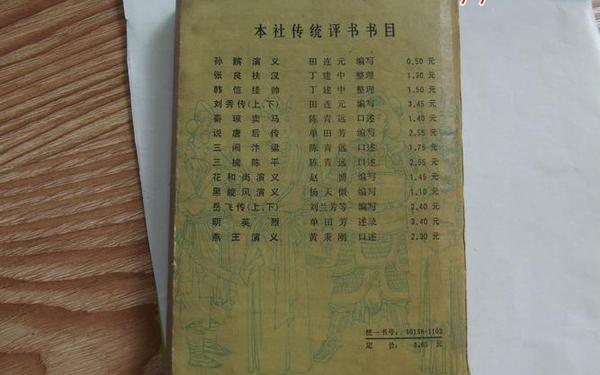 本社传统评书书目
孙膑演义 田连元 编写 0.50元
张良扶汉 丁建中 整理 1.30元
韩信挂帅 丁建中 整理 1.50元
刘秀传(上、下) 田连元 编写 3.45元
秦琼卖马 陈青远 口述 1.40元
说唐后传 单田芳 编写 2.55元
三闹汴梁 陈青远 口述 1.75元
三擒陈平 陈青远 口述 2.55元
花和尚演义 赵博 编写 1.45元
黑旋风演义 杨天微 编写 1.10元
岳飞传(上、下) 刘兰芳等 编写 2.40元
明英烈 单田芳 述录 3.40元
燕王演义 黄秉刚 口述 2.30元
统一书号：10158·1102
定价： 元